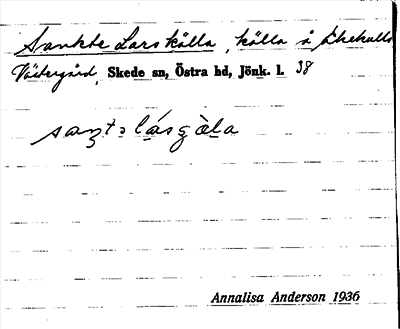 Sankte Lars källa, källa å Åkehults
Västergård, Skede sn, Östra hd, Jönk. l. 38
Annalisa Anderson 1936